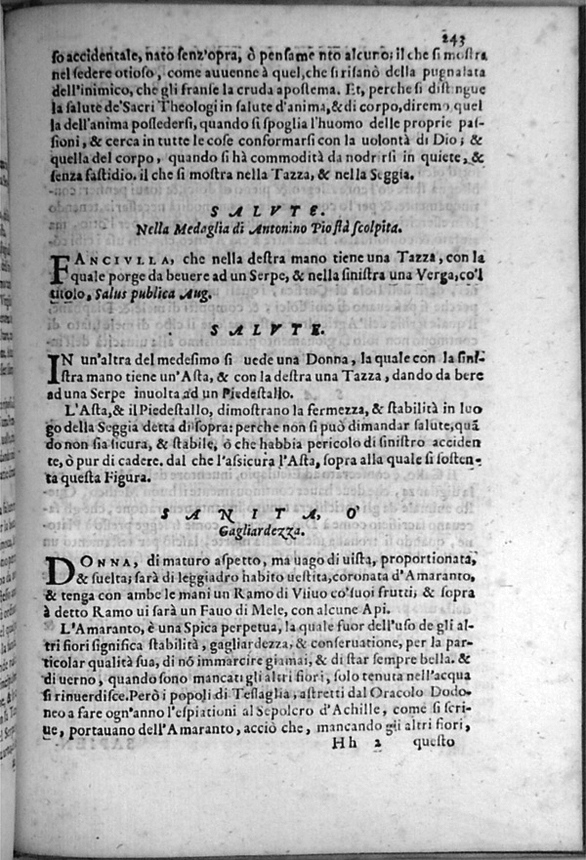 243
so accidentale, nato senz'opra, ò pensame nto alcuro; il che si mostra
nel sedere otioso, come auuenne à quel, che si risanò della pugnalata
dell'inimico, che gli franse la cruda apostema. Et, perche si distingue
la salute de'Sacri Theologi in salute d'anima, & di corpo, diremo quel
la dell'anima possedersi, quando si spoglia l'huomo delle proprie pas-
sioni, & cerca in tutte le cose conformarsi con la uolontà di Dio; &
quella del corpo, quando si hà commodità da nodrirsi in quiete, &
senza fastidio. il che si mostra nella Tazza, & nella Seggia.
SALVTE.
Nella Medaglia di Antonino Pio stà scolpita.
FANCIVLLA, che nella destra mano tiene una Tazza, con la
quale porge da beuere ad un Serpe, & nella sinistra una Verga, co'l
titolo, Salus publica Aug.
SALVTE.
IN un'altra del medesimo si uede una Donna, la quale con la sini-
stra mano tiene un'Asta, & con la destra una Tazza, dando da bere
ad una Serpe inuolta ad un Piedestallo.
L'Asta, & il Piedestallo, dimostrano la fermezza, & stabilità in luo
go della Seggia detta di sopra: perche non si può dimandar salute, quā
do non sia sicura, & stabile, ò che habbia pericolo di sinistro acciden
te, ò pur di cadere. dal che l'assicura l'Asta, sopra alla quale si sosten-
ta questa Figura.
SANITA, O'
Gagliardezza.
DONNA, di maturo aspetto, ma uago di uista, proportionata,
& suelta; sarà di leggiadro habito uestita, coronata d'Amaranto,
& tenga con ambe le mani un Ramo di Vliuo co'suoi frutti, & sopra
à detto Ramo ui sarà un Fauo di Mele, con alcune Api.
L'Amaranto, è una Spica perpetua, la quale fuor dell'uso de gli al-
tri fiori significa stabilità, gagliardezza, & conseruatione, per la par-
ticolar qualità sua, di nō immarcire giamai, & di star sempre bella. &
di uerno, quando sono mancati gli altri fiori, solo tenuta nell'acqua
si rinuerdisce. Però i popoli di Tessaglia, astretti dal Oracolo Dodo-
neo a fare ogn'anno l'espiationi al Sepolcro d'Achille, come si scri-
ue, portauano dell'Amaranto, acciò che, mancando gli altri fiori,
Hh 2 questo